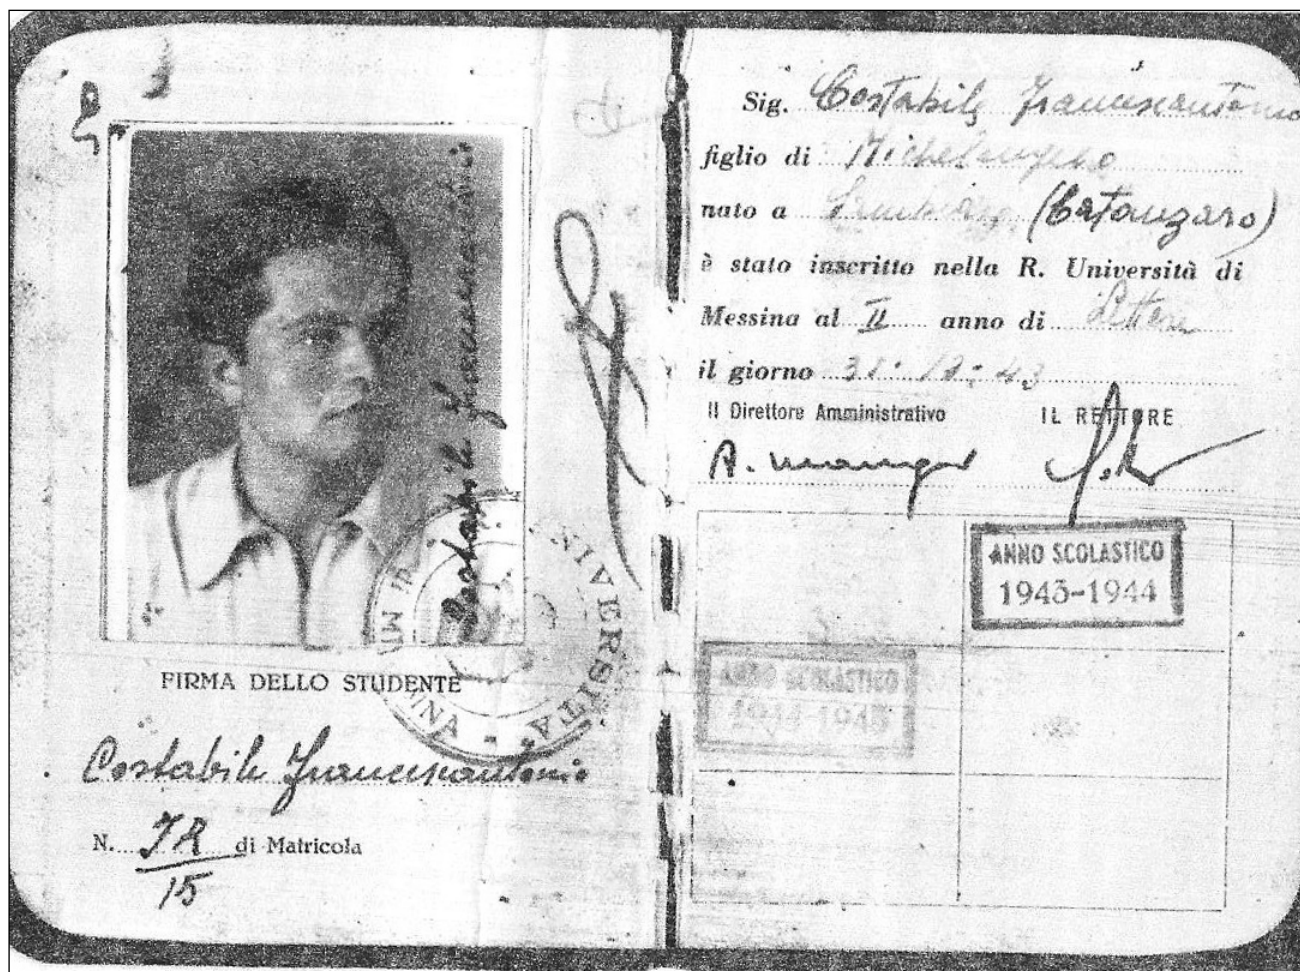 Costabile Franciscantonio
UNIVERSITA
DI MESSINA
FIRMA DELLO STUDENTE
Costabile Franciscantonio
N. 72/15 di Matricola
Sig. Costabile Franciscantonio
figlio di Michelangelo
nato a (Catanzaro)
è stato inscritto nella R. Università di
Messina al II anno di Lettere
il giorno 31-12-43
Il Direttore Amministrativo IL RETTORE
ANNO SCOLASTICO
1943-1944
ANNO SCOLASTICO
1944-1945